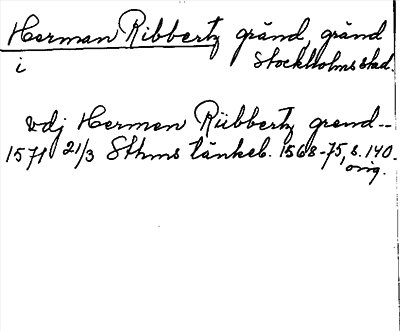 Herman Ribbertz gränd, gränd
i Stockholms stad.
vdj Hermen Rübbertz grend--
1571 21/3 Sthms tänkeb. 1568-75, s. 140.
orig.